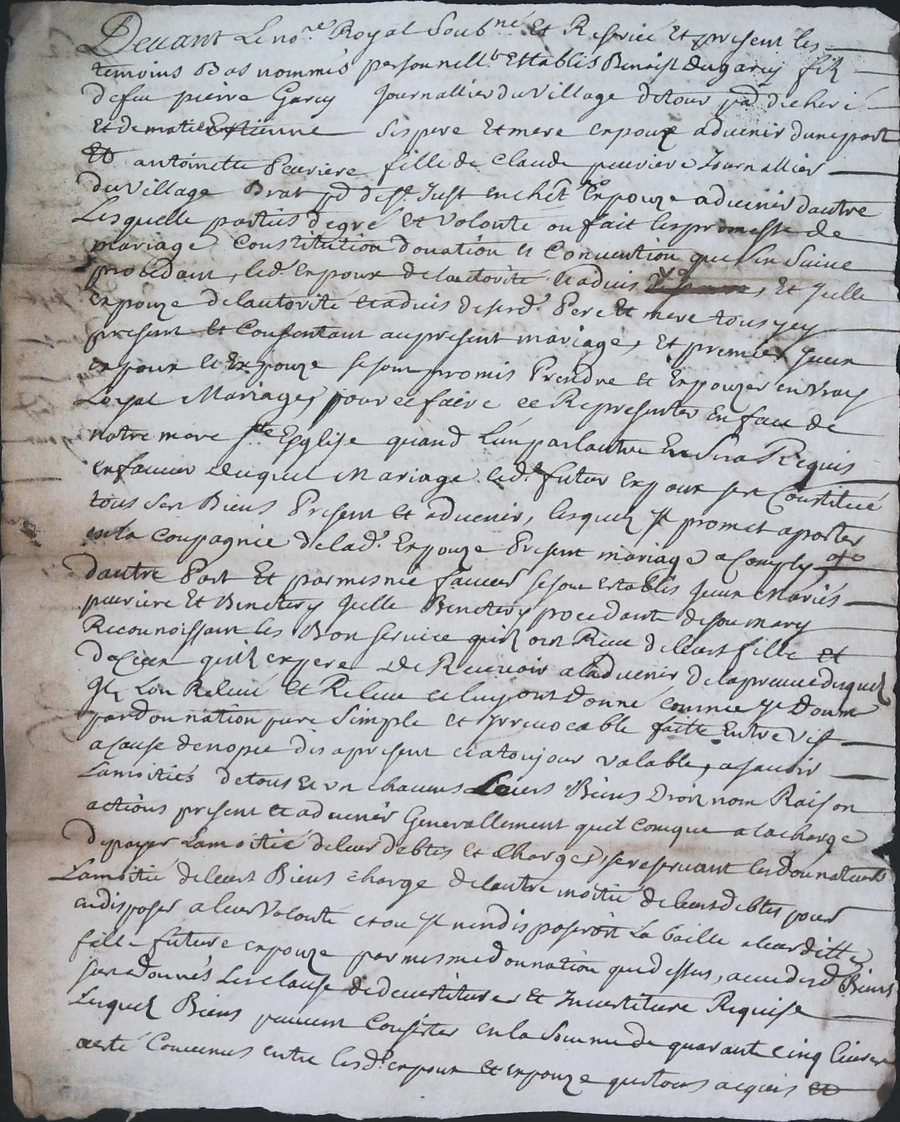 Devant Le no.re Royal Soub.né Et Reservé Et present les
temoins Bas nommés personnell.t Establis Benoist dugaruy fils
defeu pierre Garuy Journallier du Village detour p.d
Et de Estienne Ses pere Et mere expoux aduenir dune part
Et antoinette Peuriere fille de Claude peuriere Journallier
du Village Brat p.d de S.t Just en chêt Expouze aduenir dautre
Lesquelle parties degré Et Volonté on fait les promesse de
mariage Constitution donation et Convention que sen Suive
procedant, led. Expoux de lautorité Et aduis, Et Jcelle
expouze de lautorité et aduis desesd. Pere Et mere tous Jcy
present et Consentant au present mariage, Et premier Jceux
expoux et Expouze se sont promis Prendre et Expouzer en vray
Loyal Mariage, pour ce faire ce Representer En face de
notre mere S.te Esglise quand Lun par lautre En Sera Requis
enfaueur duquel Mariage led. futur expoux sest Constitué
tous Ses Biens Present et aduenir, lesquels Jl promet aporter
en la Compagnie delad. Expouze Present mariage acomply
dautre Part Et parmesme faueur se sont establis Jceux Mariés
peuriere Et Benetery Jcelle Benetery procedante de son mary
Reconnoissant les Bon Service quils ont Receu de leurs fille et
de Ceux quils expere de Receuoir aladuenir de la preuue desquels
Jls Lon Releué et Releue ce luy ont Donné comme Jls Donne
par donnation pure Simple et Jrreuocable faite Entre vif
a Cause de nopce dis apresent et atoujour valable, asauoir
Lamoitiés de tous et vn chacuns Leurs Biens Droit nom Raison
actions present et aduenir Generallement quelconque ala charge
de payer Lamoitié de leur debtes et Charges, se reseruant lesd donnateurs
Lamoitié de leurs Biens charge de lautre moitié de leurs debtes pour
en disposer a leur Volonté et ou Jls nendisposeroit La baille a leur ditte
fille future expouze par mesme donnation que dessus, aucedesd. Biens
sus donnés Les clause de deuestiture Et Jnuestiture Requise
Lesquels Biens peuuent Consister en la Somme de quarante cinq liures
a esté Conuenus entre lesd. expoux et expouze que tous acquis